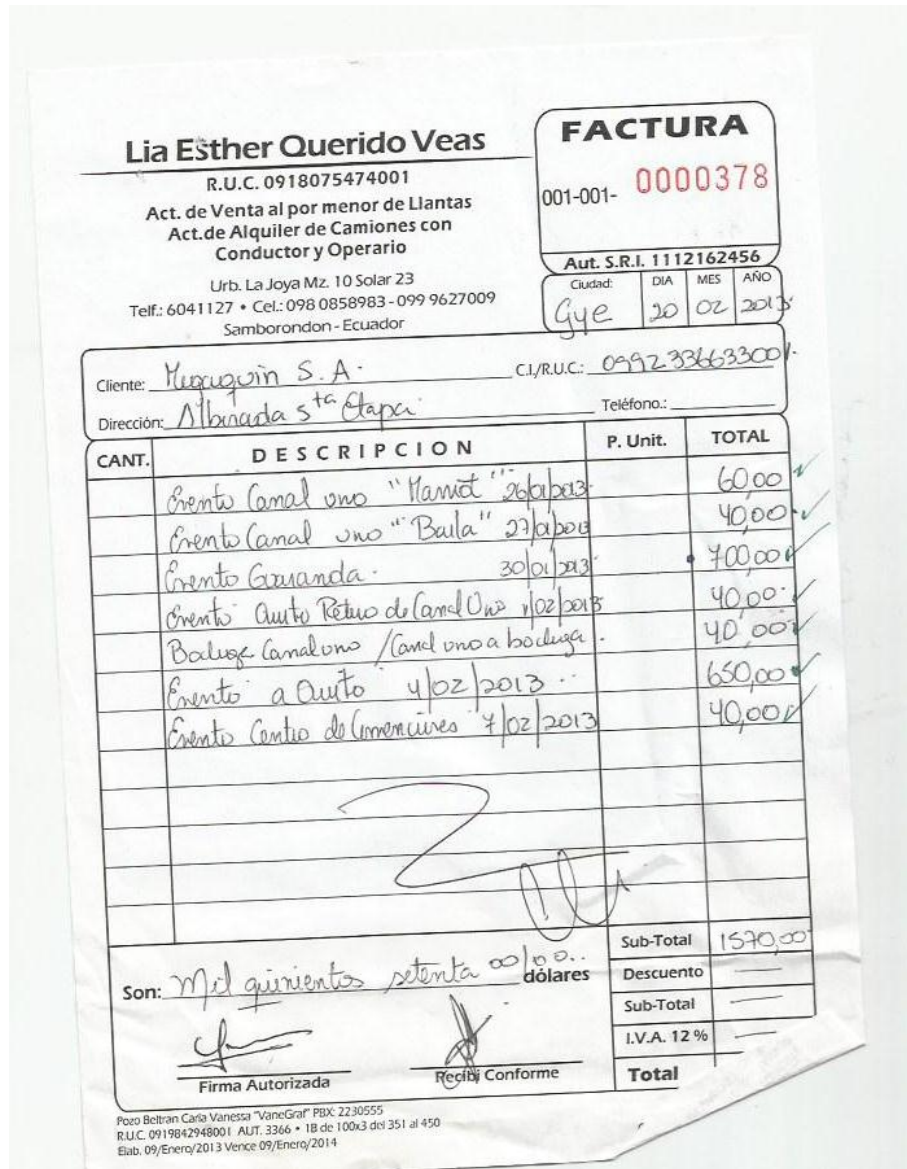 Lia Esther Querido Veas
R.U.C. 0918075474001
Act. de Venta al por menor de Llantas
Act.de Alquiler de Camiones con
Conductor y Operario
Urb. La Joya Mz. 10 Solar 23
Telf.: 6041127 • Cel.: 098 0858983 - 099 9627009
Samborondon - Ecuador
FACTURA
001-001- 0000378
Aut. S.R.I. 1112162456
Ciudad: DIA MES AÑO
Gye 20 02 2013
Cliente: S.A. C.I./R.U.C.: 0992336633001
Dirección: 5ta Etapa Teléfono.:
CANT. DESCRIPCION P. Unit. TOTAL
Evento Canal uno 26/01/2013 60,00
Evento Canal uno "Baila" 27/01/2013 40,00
Evento Guaranda 30/01/2013 700,00
Evento Quito Retiro de Canal Uno 1/02/2013 40,00
Bodega Canal uno / Canal uno a bodega 40,00
Evento a Quito 4/02/2013 650,00
Evento Centro de 7/02/2013 40,00
Sub-Total 1570,00
Son: Mil quinientos setenta 00/00 dólares
Descuento
Sub-Total
I.V.A. 12 %
Total
Firma Autorizada Recibi Conforme
Pozo Beltran Carla Vanessa "VaneGraf" PBX: 2230555
R.U.C. 0919842948001 AUT. 3366 • 1B de 100x3 del 351 al 450
Elab. 09/Enero/2013 Vence 09/Enero/2014